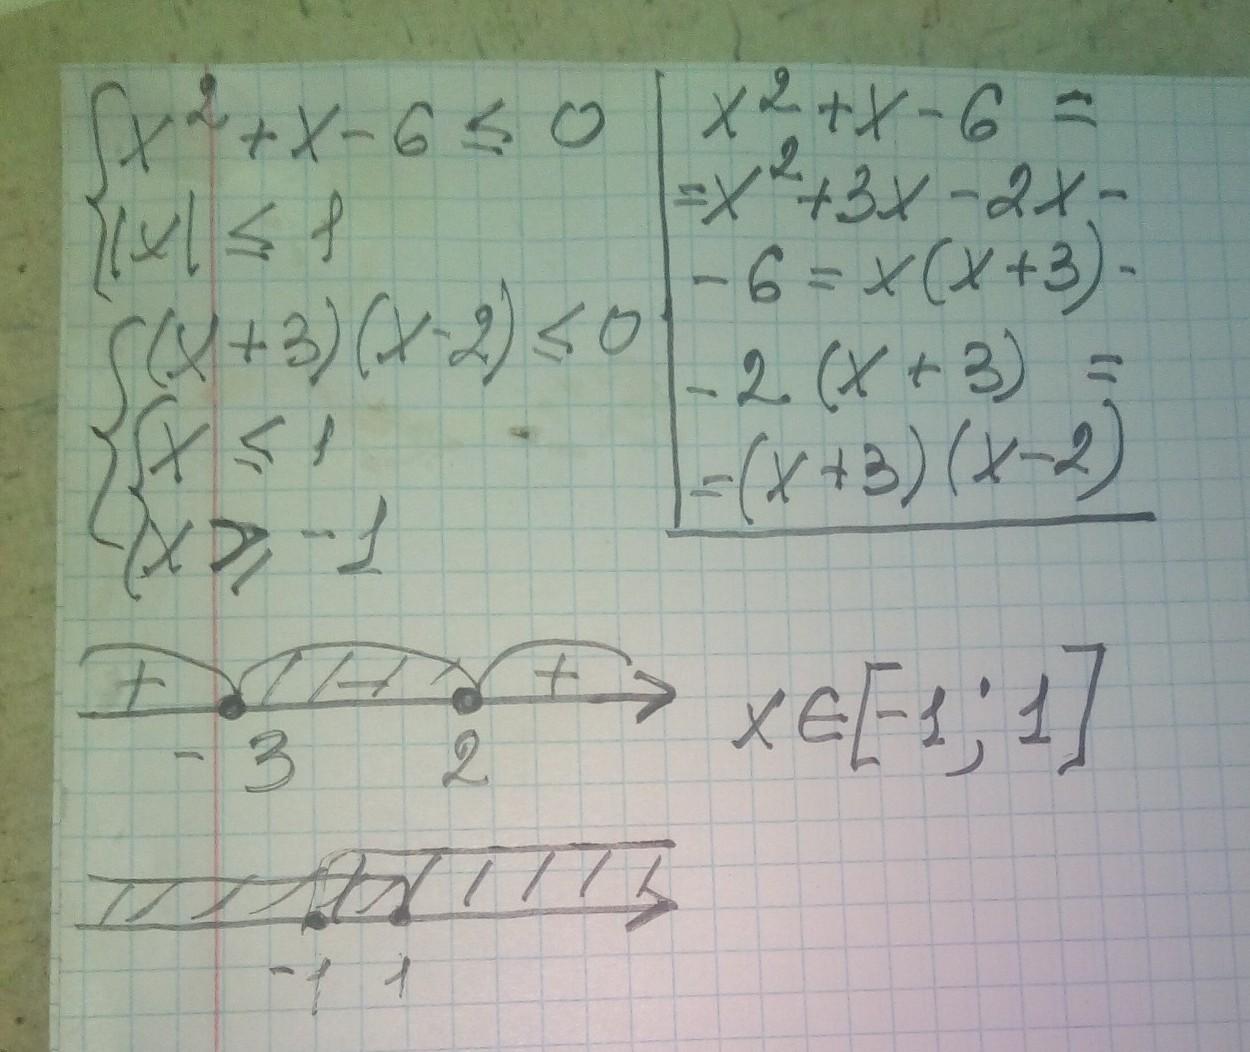 x² + x - 6 ≤ 0
|x| ≤ 1
(x + 3)(x - 2) ≤ 0
x ≤ 1
x ≥ -1
x² + x - 6 =
= x² + 3x - 2x -
- 6 = x(x + 3) -
- 2(x + 3) =
= (x + 3)(x - 2)
+ - +
-3 2
x ∈ [-1; 1]
-1 1